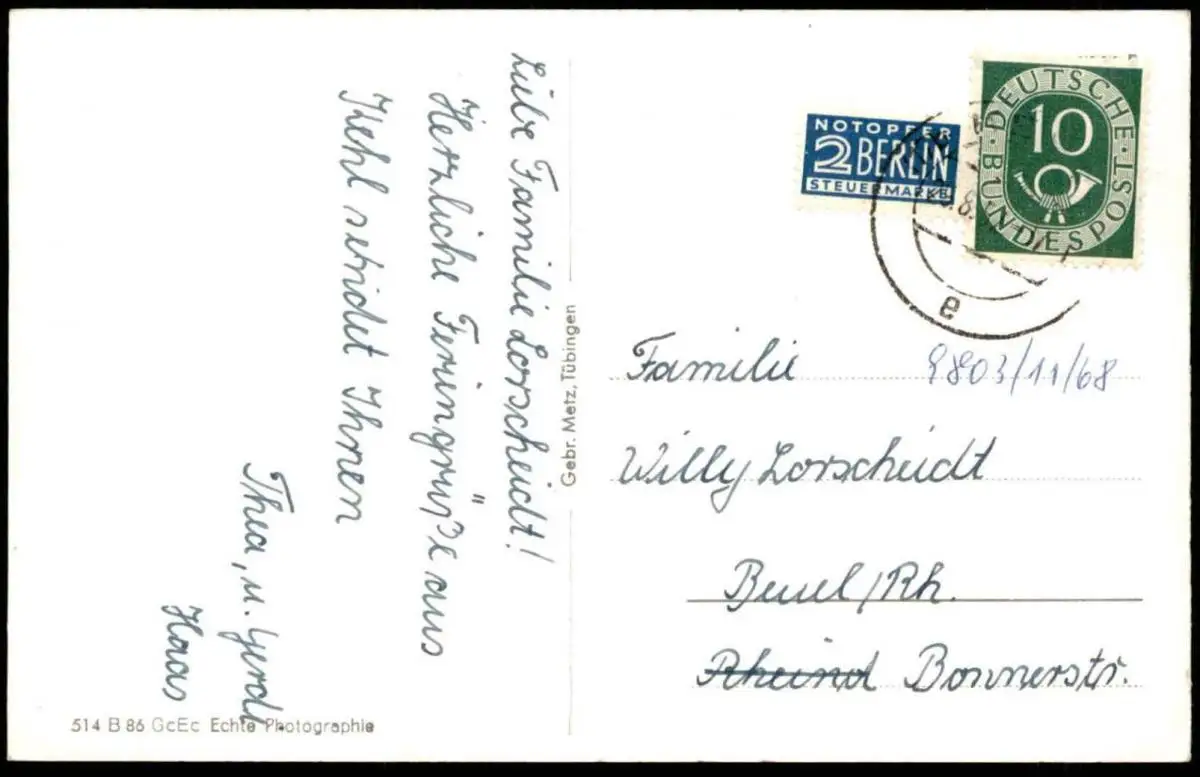 Liebe Familie Lorscheidt!
Herzliche Feriengrüße aus
Kehl sendet Ihnen
Thea, u. Gerdt
Haas
514 B 86 GcEc Echte Photographie
Gebr. Metz, Tübingen
NOTOPFER
2 BERLIN
STEUERMARKE
DEUTSCHE
BUNDESPOST
10
e
Familie
9803/11/68
Willy Lorscheidt
Beuel/Rh.
Bonnerstr.